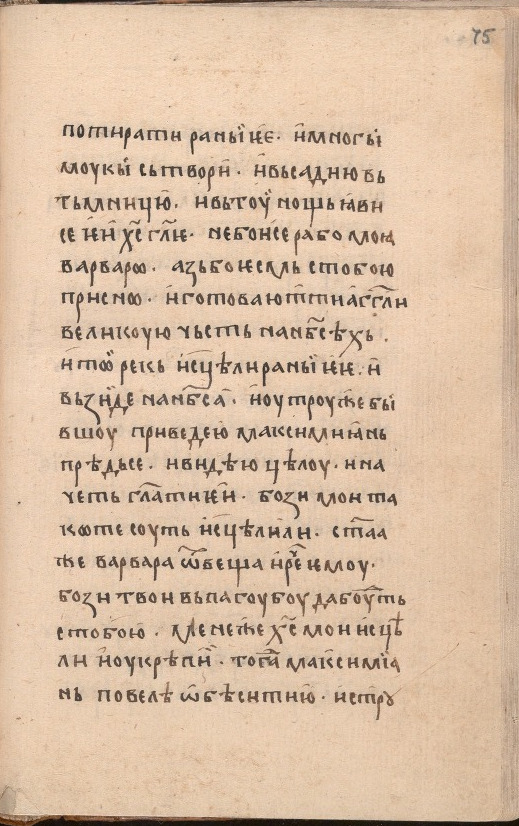 75
потирати раныи ѥ҆е · и҆многы
моукы сьтвори · и҆вьсадию вь
тьмницю · и҆вьтоу нощь ꙗ҆ви
се ѥ҆и х҃с гл҃ѥ · небоисе рабо моꙗ
варваро · азьбоѥсмь стобою
присно · и҆готоваютьти аг҃гли
великоую чьсть нанб҃сѣхь ·
и҆тѡ рекь и҆сцѣли раныи ѥ҆ѥ · и҆
вьзиде нанб҃са · и҆оутроуже бы
вшоу приведею маѯимиꙗнь
прѣдьсе · и҆видѣю цѣлоу · ина
четь гл҃ати ѥ҆и · бози мои та
коте соуть и҆сцѣлили · ст҃аа
же варвара ѿвеща и҆рч҃е ѥмоу ·
бози твои вьпагоубоу дабоуть
стобою · мене же х҃с мои исцѣ
ли и҆оукрѣпи · тог҃а маѯимиꙗ
нь повелѣ ѡбѣситию · истроу